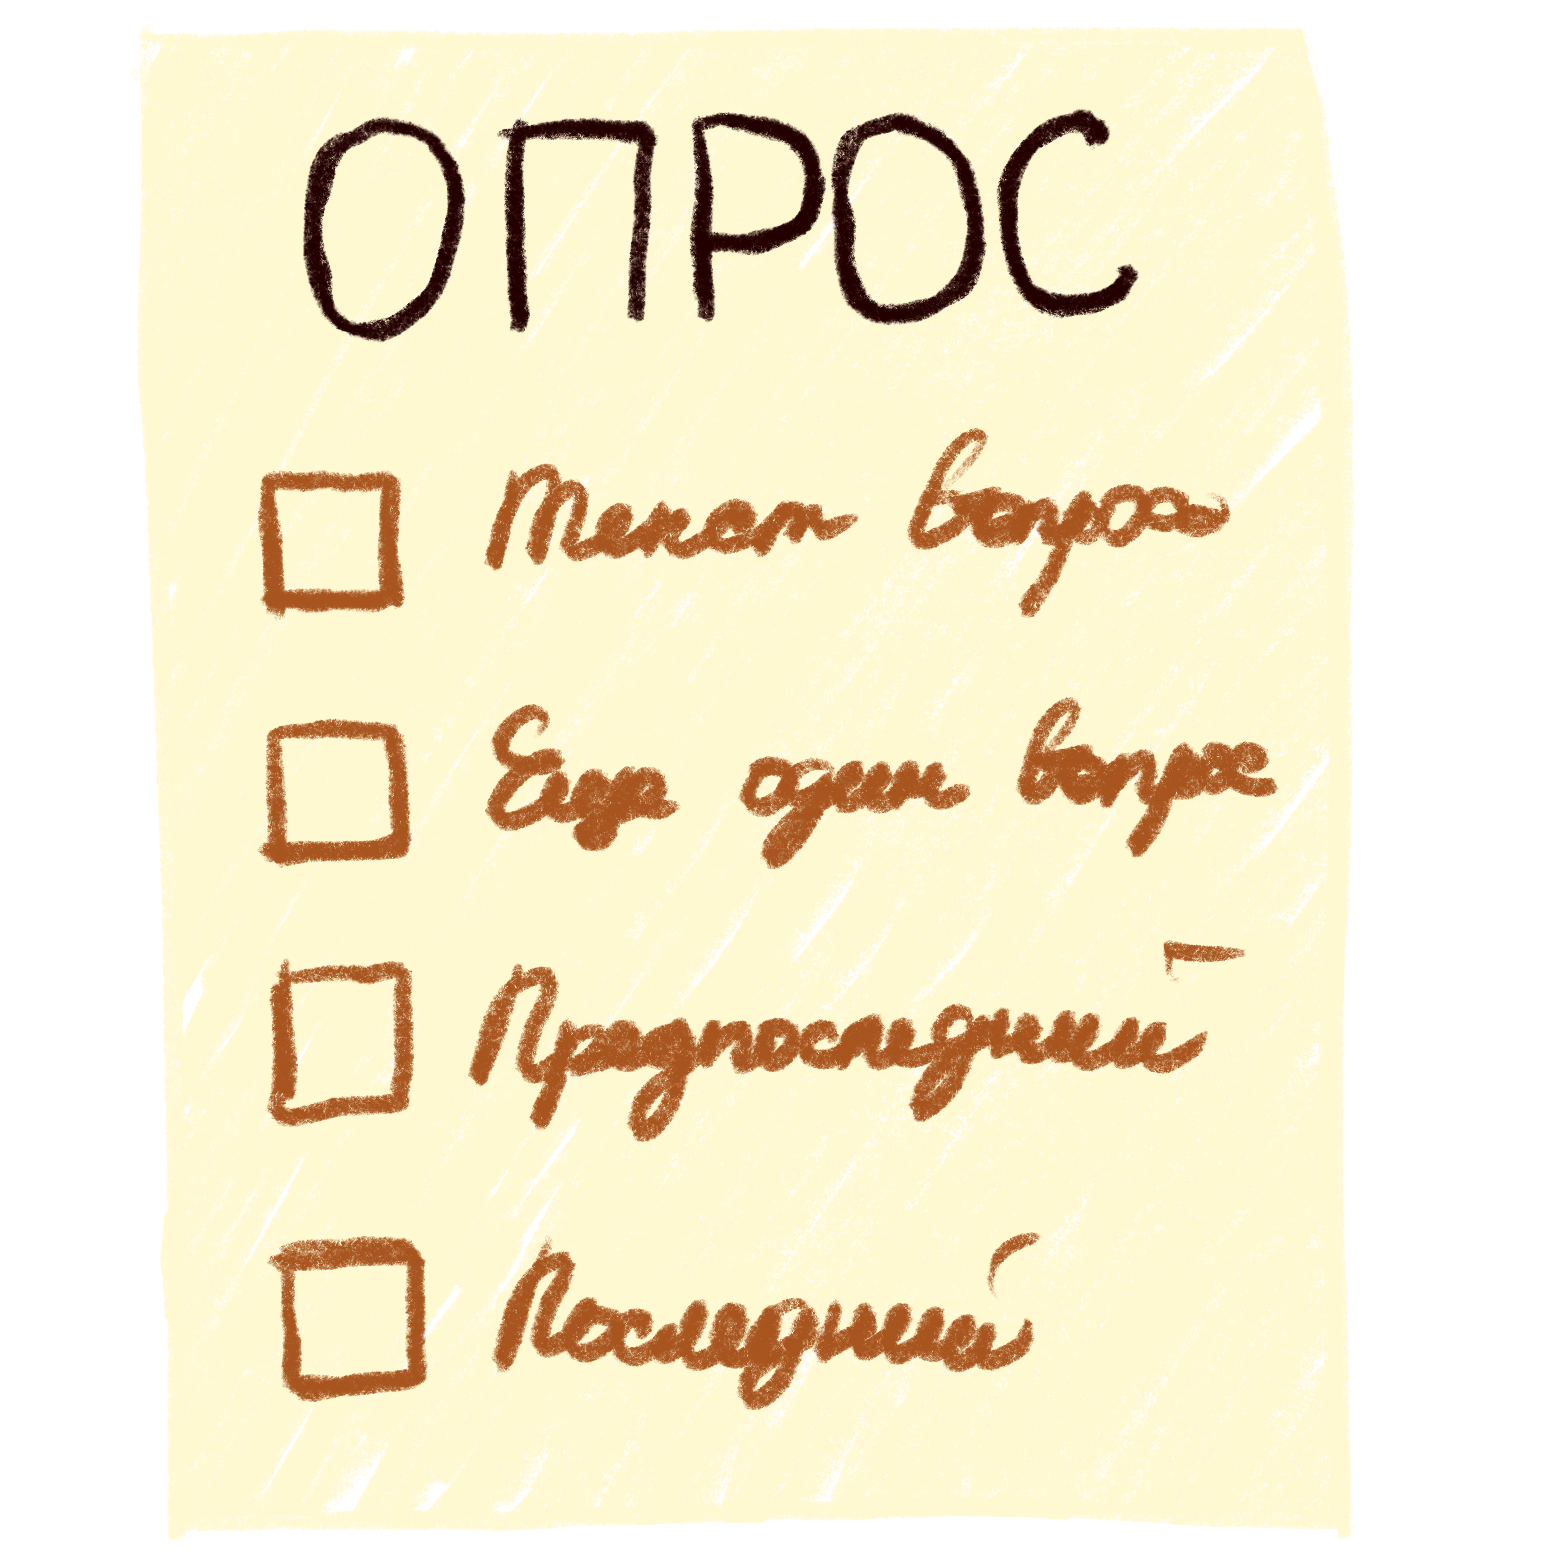 ОПРОС
Текст вопроса
Еще один вопрос
Предпоследний
Последний